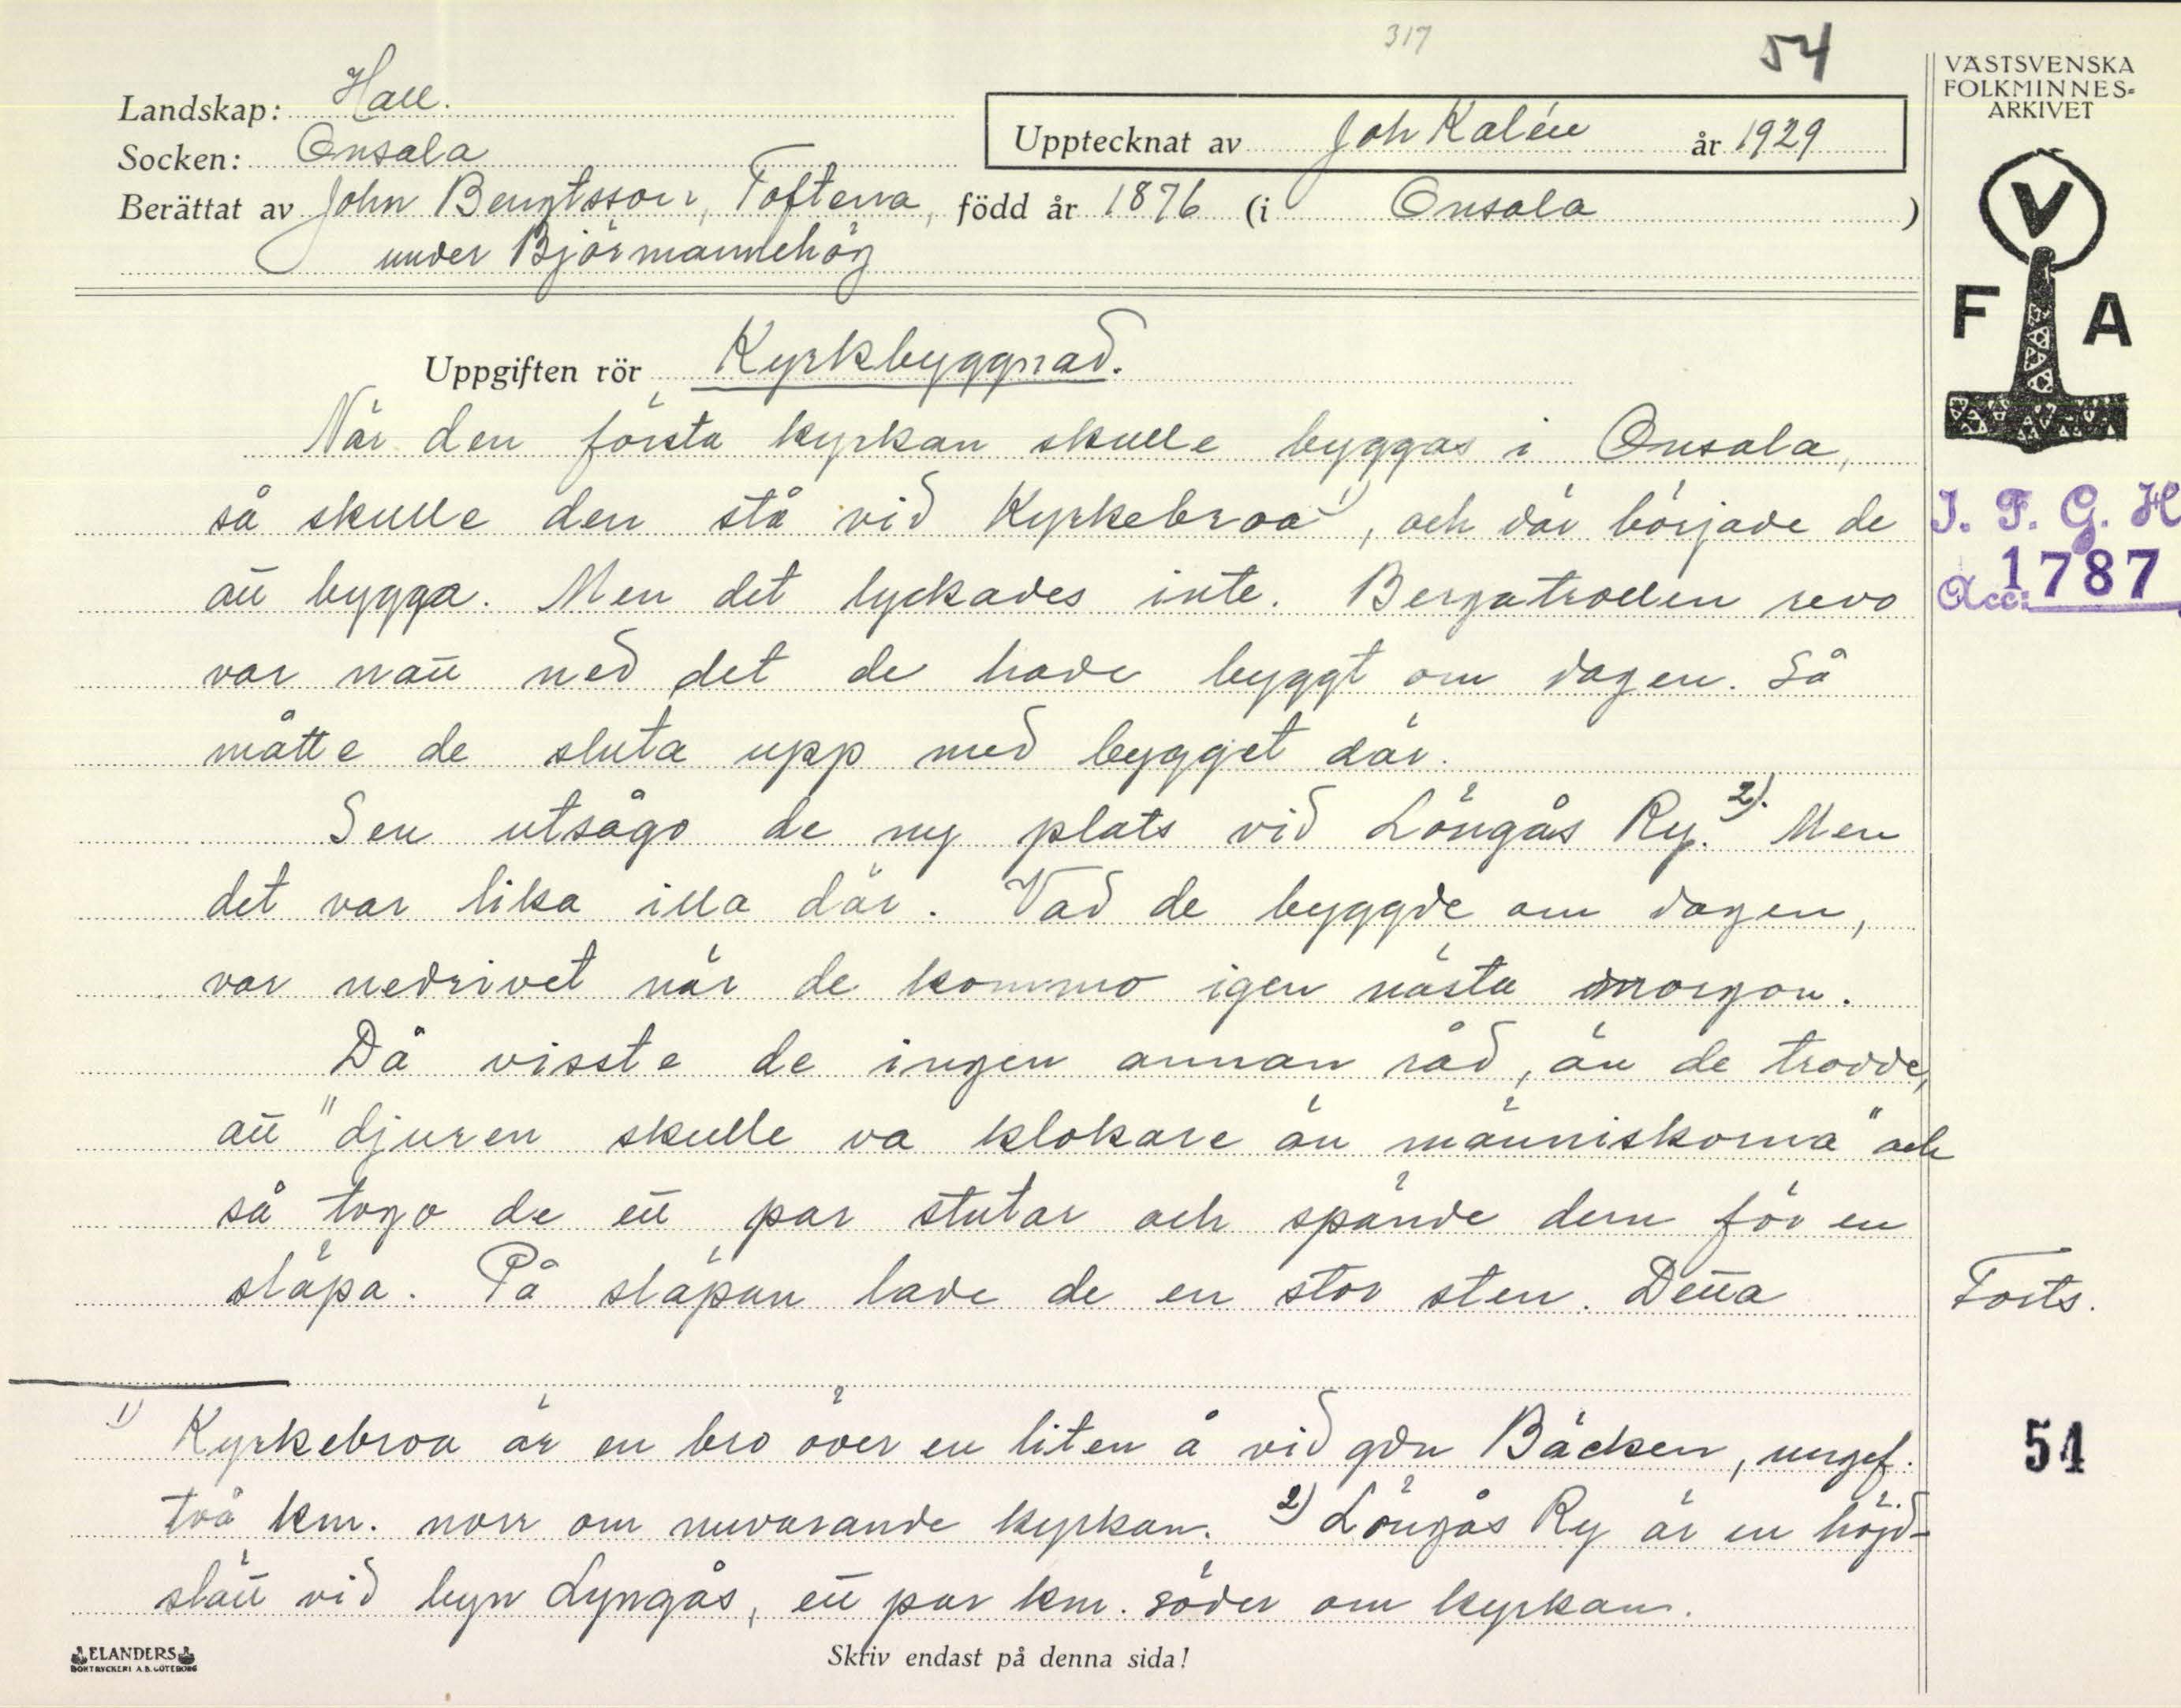 317
54
VÄSTSVENSKA
FOLKMINNES-
ARKIVET
Landskap: Hall.
Socken: Onsala
Upptecknat av Joh Kalén år 1929
Berättat av John Bengtsson, Toftena, född år 1876 (i Onsala)
under Björmannehög
V
F A
Uppgiften rör Kyrkbyggnad.
När den första kyrkan skulle byggas i Onsala,
så skulle den stå vid Kyrkebroa 1), och där började de
att bygga. Men det lyckades inte. Bergatrollen revo
var natt ned det de hade byggt om dagen. Så
måtte de sluta upp med bygget där.
Sen utsågo de ny plats vid Löngås Ry. 2). Men
det var lika illa där. Vad de byggde om dagen,
var nedrivet när de kommo igen nästa morgon.
Då visste de ingen annan råd, än de trodde,
att "djuren skulle va klokare än människorna" och
så togo de ett par stutar och spände dem för en
släpa. På släpan lade de en stor sten. Detta
Forts.
I. F. G. H
Acc: 1787
1) Kyrkebroa är en bro över en liten å vid gdn Bäcken, ungef.
två km. norr om nuvarande kyrkan. 2) Löngås Ry är en höjd-
slätt vid byn Lyngås, ett par km. söder om kyrkan.
54
ELANDERS
BOKTRYCKERI A.B. GÖTEBORG
Skriv endast på denna sida!